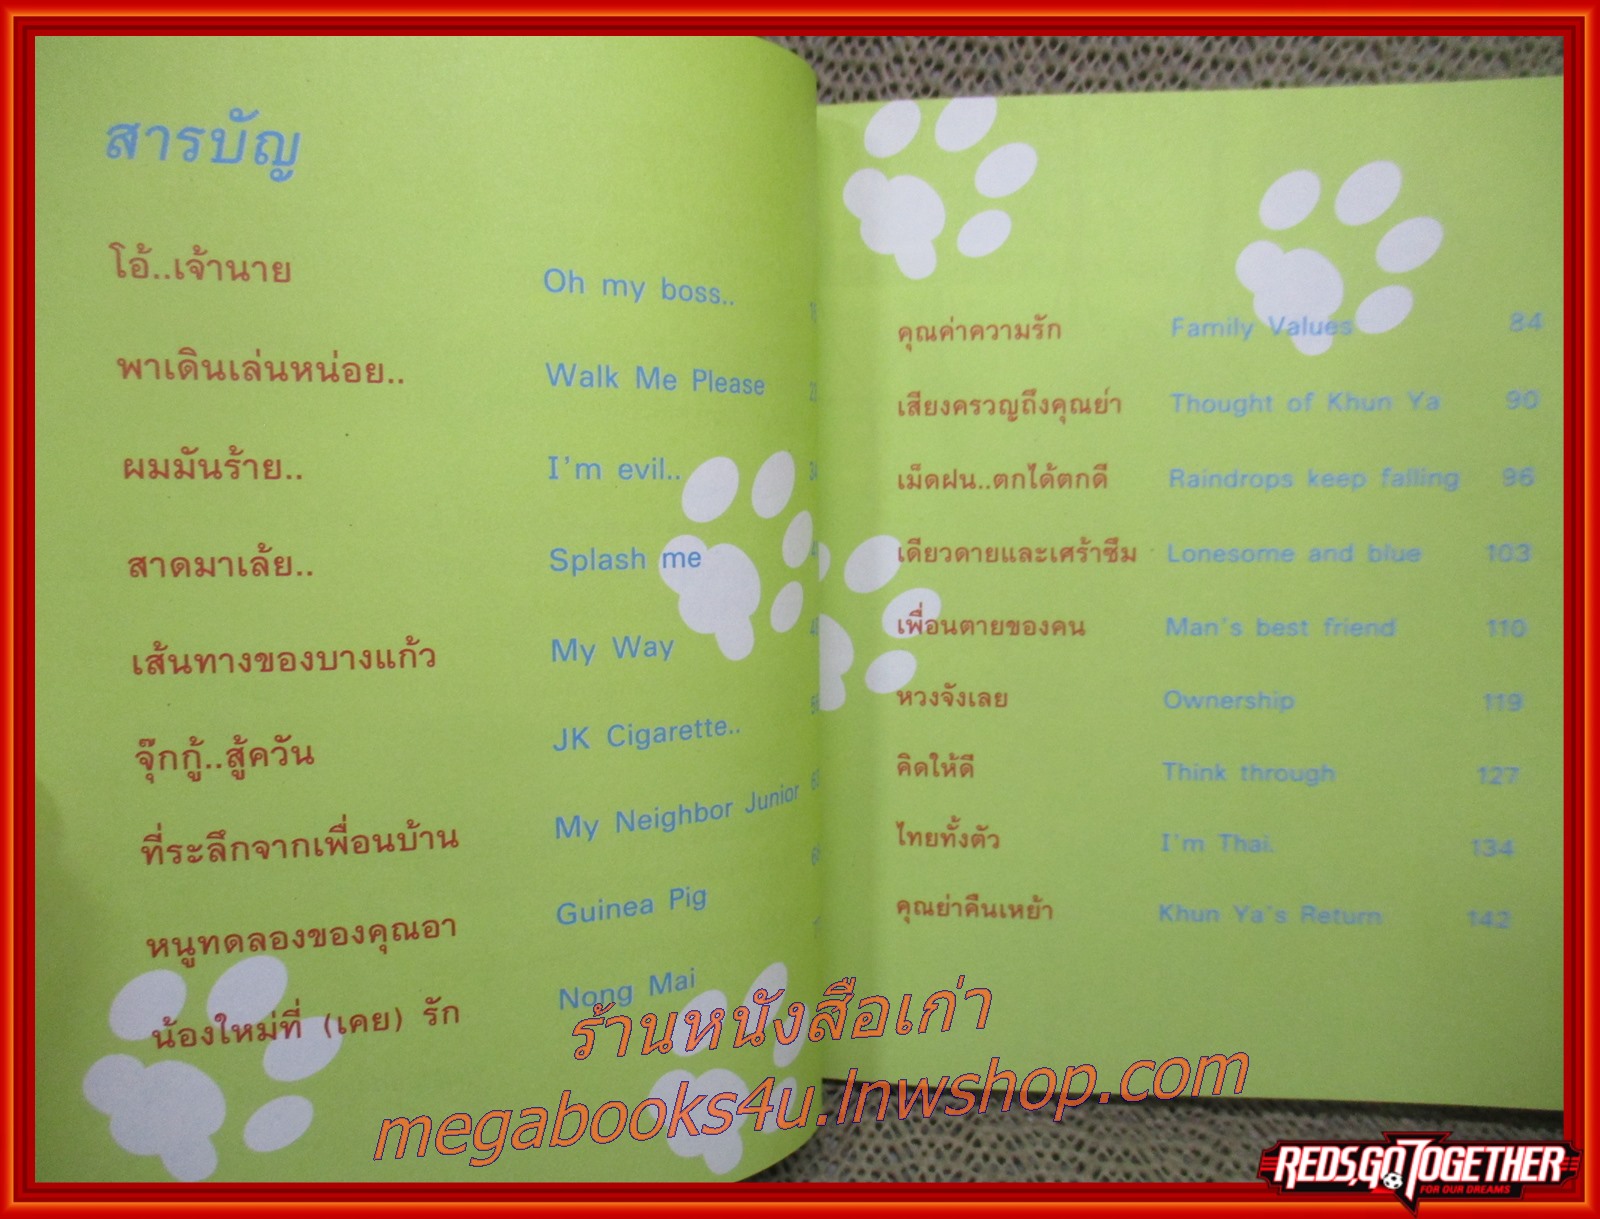 สารบัญ
โอ้..เจ้านาย Oh my boss..
พาเดินเล่นหน่อย.. Walk Me Please
ผมมันร้าย.. I'm evil..
สาดมาเล้ย.. Splash me
เส้นทางของบางแก้ว My Way
จุ๊กกู้..สู้ควัน JK Cigarette..
ที่ระลึกจากเพื่อนบ้าน My Neighbor Junior
หนูทดลองของคุณอา Guinea Pig
น้องใหม่ที่ (เคย) รัก Nong Mai
คุณค่าความรัก Family Values 84
เสียงครวญถึงคุณย่า Thought of Khun Ya 90
เม็ดฝน..ตกได้ตกดี Raindrops keep falling 96
เดียวดายและเศร้าซึม Lonesome and blue 103
เพื่อนตายของคน Man's best friend 110
หวงจังเลย Ownership 119
คิดให้ดี Think through 127
ไทยทั้งตัว I'm Thai. 134
คุณย่าคืนเหย้า Khun Ya's Return 142
ร้านหนังสือเก่า
megabooks4u.lnwshop.com
REDS,GO TOGETHER
FOR OUR DREAMS